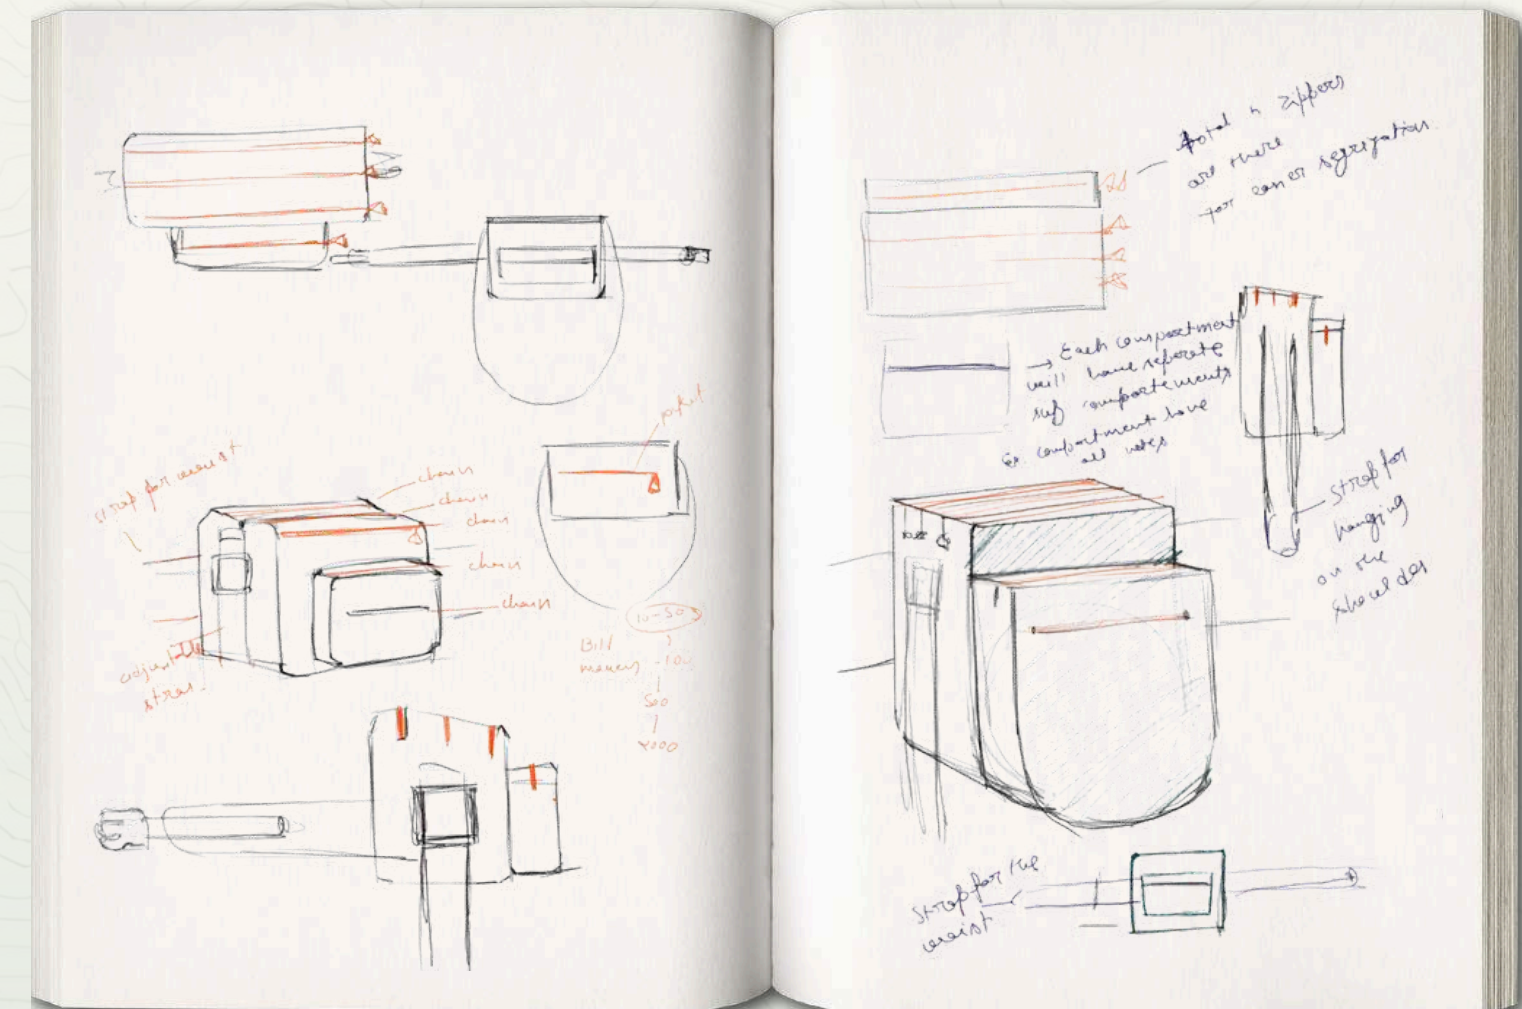 pocket
strap for waist
chain
chain
chain
chain
chain
adjustable
strap
10-50
Bill
money - 100
500
2000
total 4 zippers
are there
for easier segrigation
→ Each compartment
will have seperate
sub compartements
Ex. compartment have
all notes
strap for
hanging
on the
shoulder
strap for the
waist